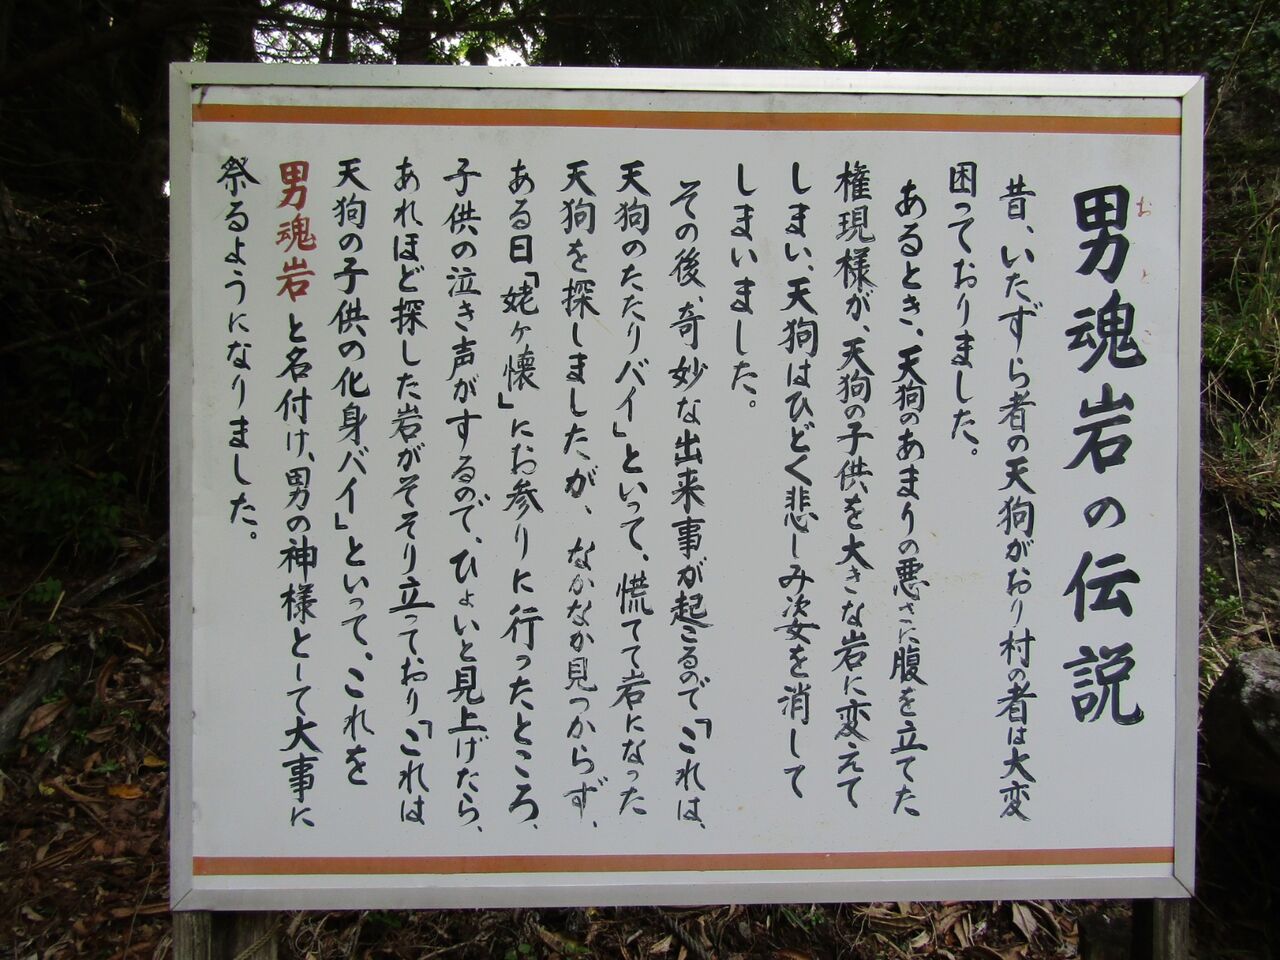 男魂岩の伝説
おとこ
昔、いたずら者の天狗がおり村の者は大変
困っておりました。
あるとき、天狗のあまりの悪さに腹を立てた
権現様が、天狗の子供を大きな岩に変えて
しまい、天狗はひどく悲しみ姿を消して
しまいました。
その後、奇妙な出来事が起こるので「これは、
天狗のたたりバイ」といって、慌てて岩になった
天狗を探しましたが、なかなか見つからず、
ある日「姥ヶ懐」にお参りに行ったところ、
子供の泣き声がするので、ひょいと見上げたら、
あれほど探した岩がそそり立っており「これは
天狗の子供の化身バイ」といって、これを
男魂岩と名付け、男の神様として大事に
祭るようになりました。